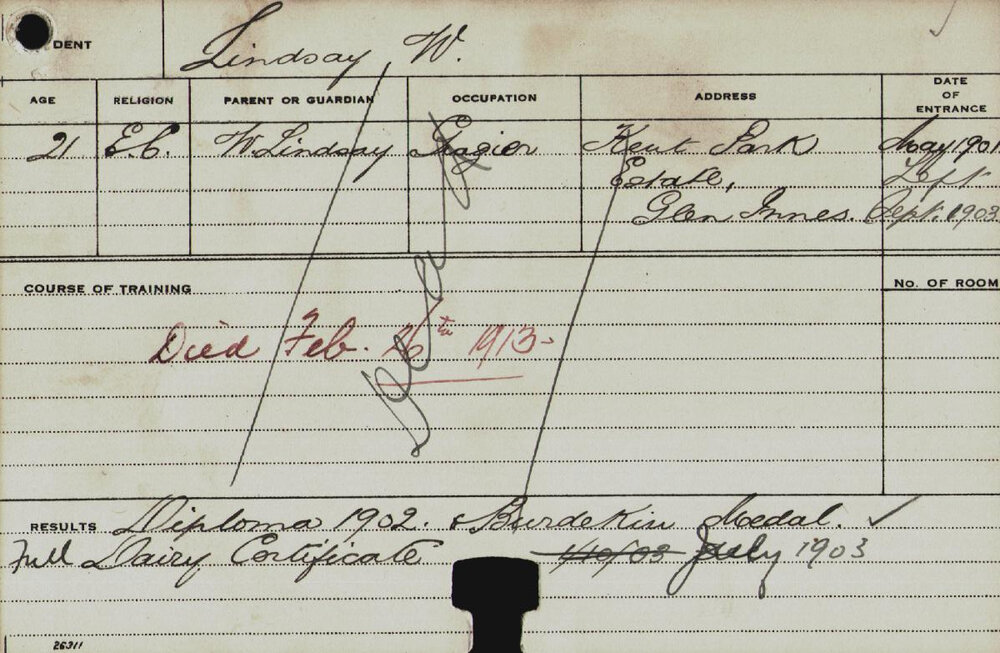 DENT Lindsay, W.
AGE RELIGION PARENT OR GUARDIAN OCCUPATION ADDRESS DATE OF ENTRANCE
21 E.C. W Lindsay Grazier Kent Park May 1901
Estate, Left
Glen Innes. Sept. 1903
COURSE OF TRAINING No. OF ROOM
Died Feb. 26th 1913-
Dead
RESULTS Diploma 1902. & Burdekin Medal. ✓
Full Dairy Certificate 1/10/03 July 1903
26311